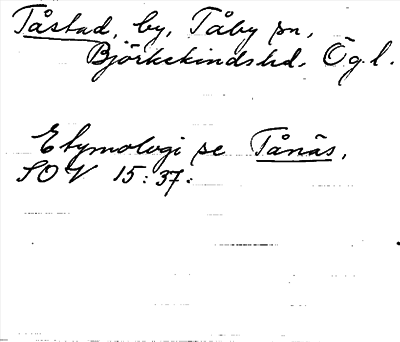 Tåstad, by, Tåby sn,
Björkekindshd. Ögl.
Etymologi se Tånäs,
SOV 15:37.